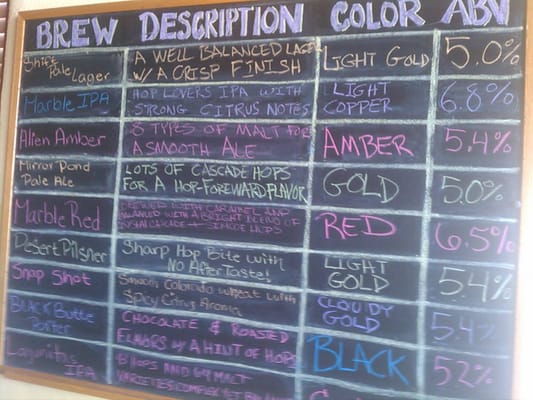 BREW DESCRIPTION COLOR ABV
Shift Pale Lager
A WELL BALANCED LAGER
W/ A CRISP FINISH
LIGHT GOLD
5.0%
Marble IPA
HOP LOVERS IPA WITH
STRONG CITRUS NOTES
LIGHT
COPPER
6.8%
Alien Amber
8 TYPES OF MALT FOR
A SMOOTH ALE
AMBER
5.4%
Mirror Pond
Pale Ale
LOTS OF CASCADE HOPS
FOR A HOP-FOREWARD FLAVOR
GOLD
5.0%
Marble Red
BREWED WITH CARAMEL AND
WITH A BRIGHT BLEND OF
HOPS
RED
6.5%
Desert Pilsner
Sharp Hop Bite with
No After Taste!
LIGHT
GOLD
5.4%
Snap Shot
Smooth Colorado wheat with
Spicy Citrus Aroma
CLOUDY
GOLD
5.4%
BLACK Butte
Porter
CHOCOLATE & ROASTED
FLAVORS W/ A HINT OF HOPS
BLACK
52%
Lagunitas
IPA
HOPS AND 64 MALT
VARIETIES